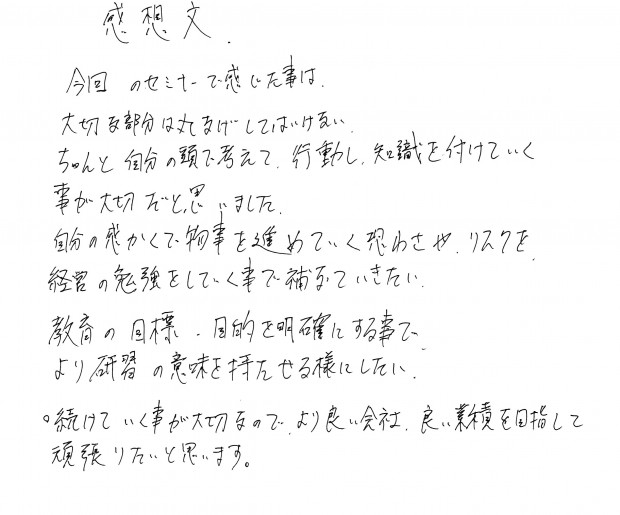 感想文.
今回のセミナーで感じた事は.
大切な部分は丸なげしてはいけない.
ちゃんと自分の頭で考えて.行動し.知識を付けていく
事が大切だと思いました.
自分の感かくで物事を進めていく恐わさや.リスクを.
経営の勉強をしていく事で補なっていきたい.
教育の目標・目的を明確にする事で、
より研習の意味を持たせる様にしたい.
○続けていく事が大切なので.より良い会社.良い業積を目指して
頑張りたいと思います。